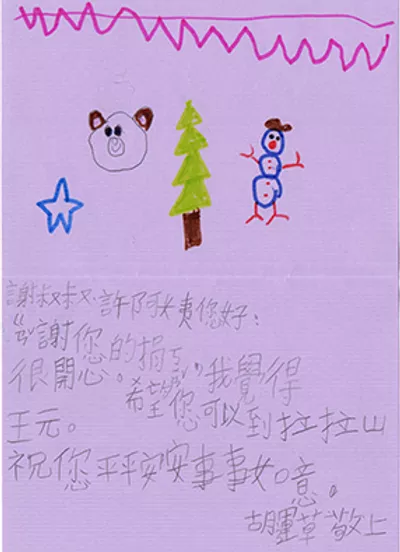 謝叔叔、許阿姨您好：
ㄍㄢˇ謝您的捐，我覺得
很開心。希望您可以到拉拉山
王元。
祝您平平安安事事如意。
胡草敬上